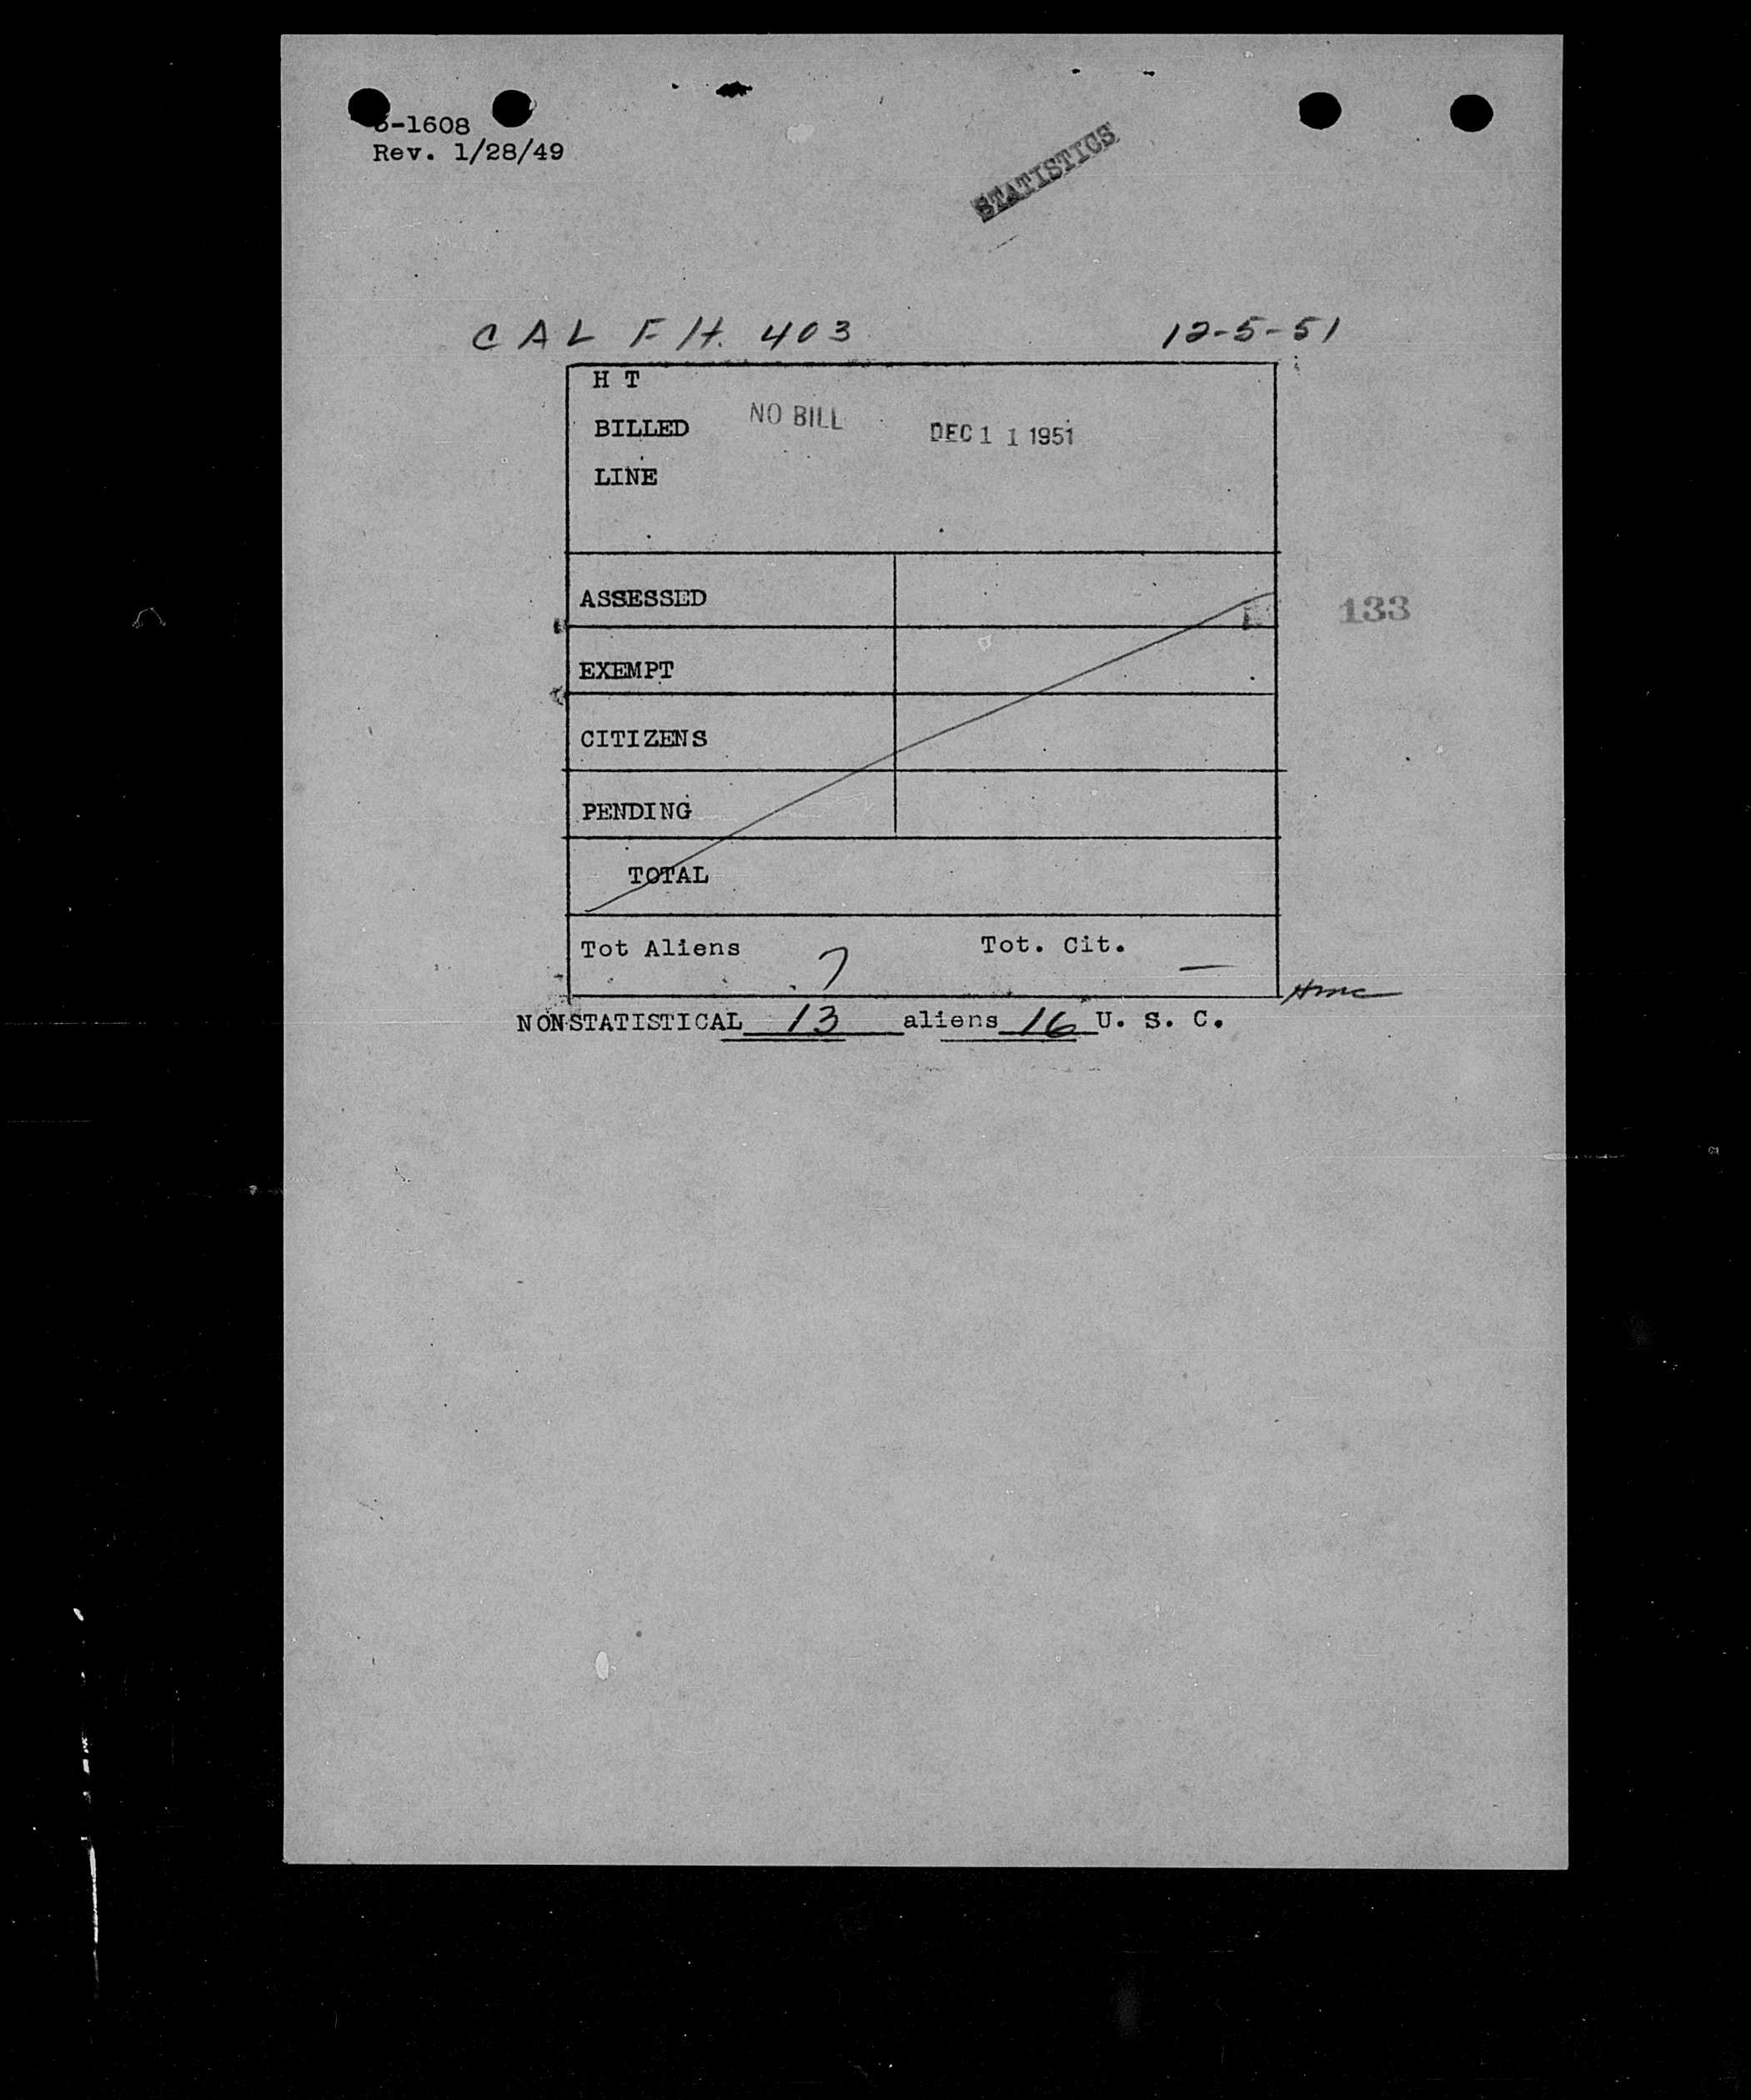 -1608
Rev. 1/28/49
STATISTICS
CAL F.H. 403 12-5-51
H T
BILLED NO BILL DEC 1 1 1951
LINE
ASSESSED
133
EXEMPT
CITIZENS
PENDING
TOTAL
Tot Aliens 7 Tot. Cit. —
NONSTATISTICAL 13 aliens 16 U. S. C.